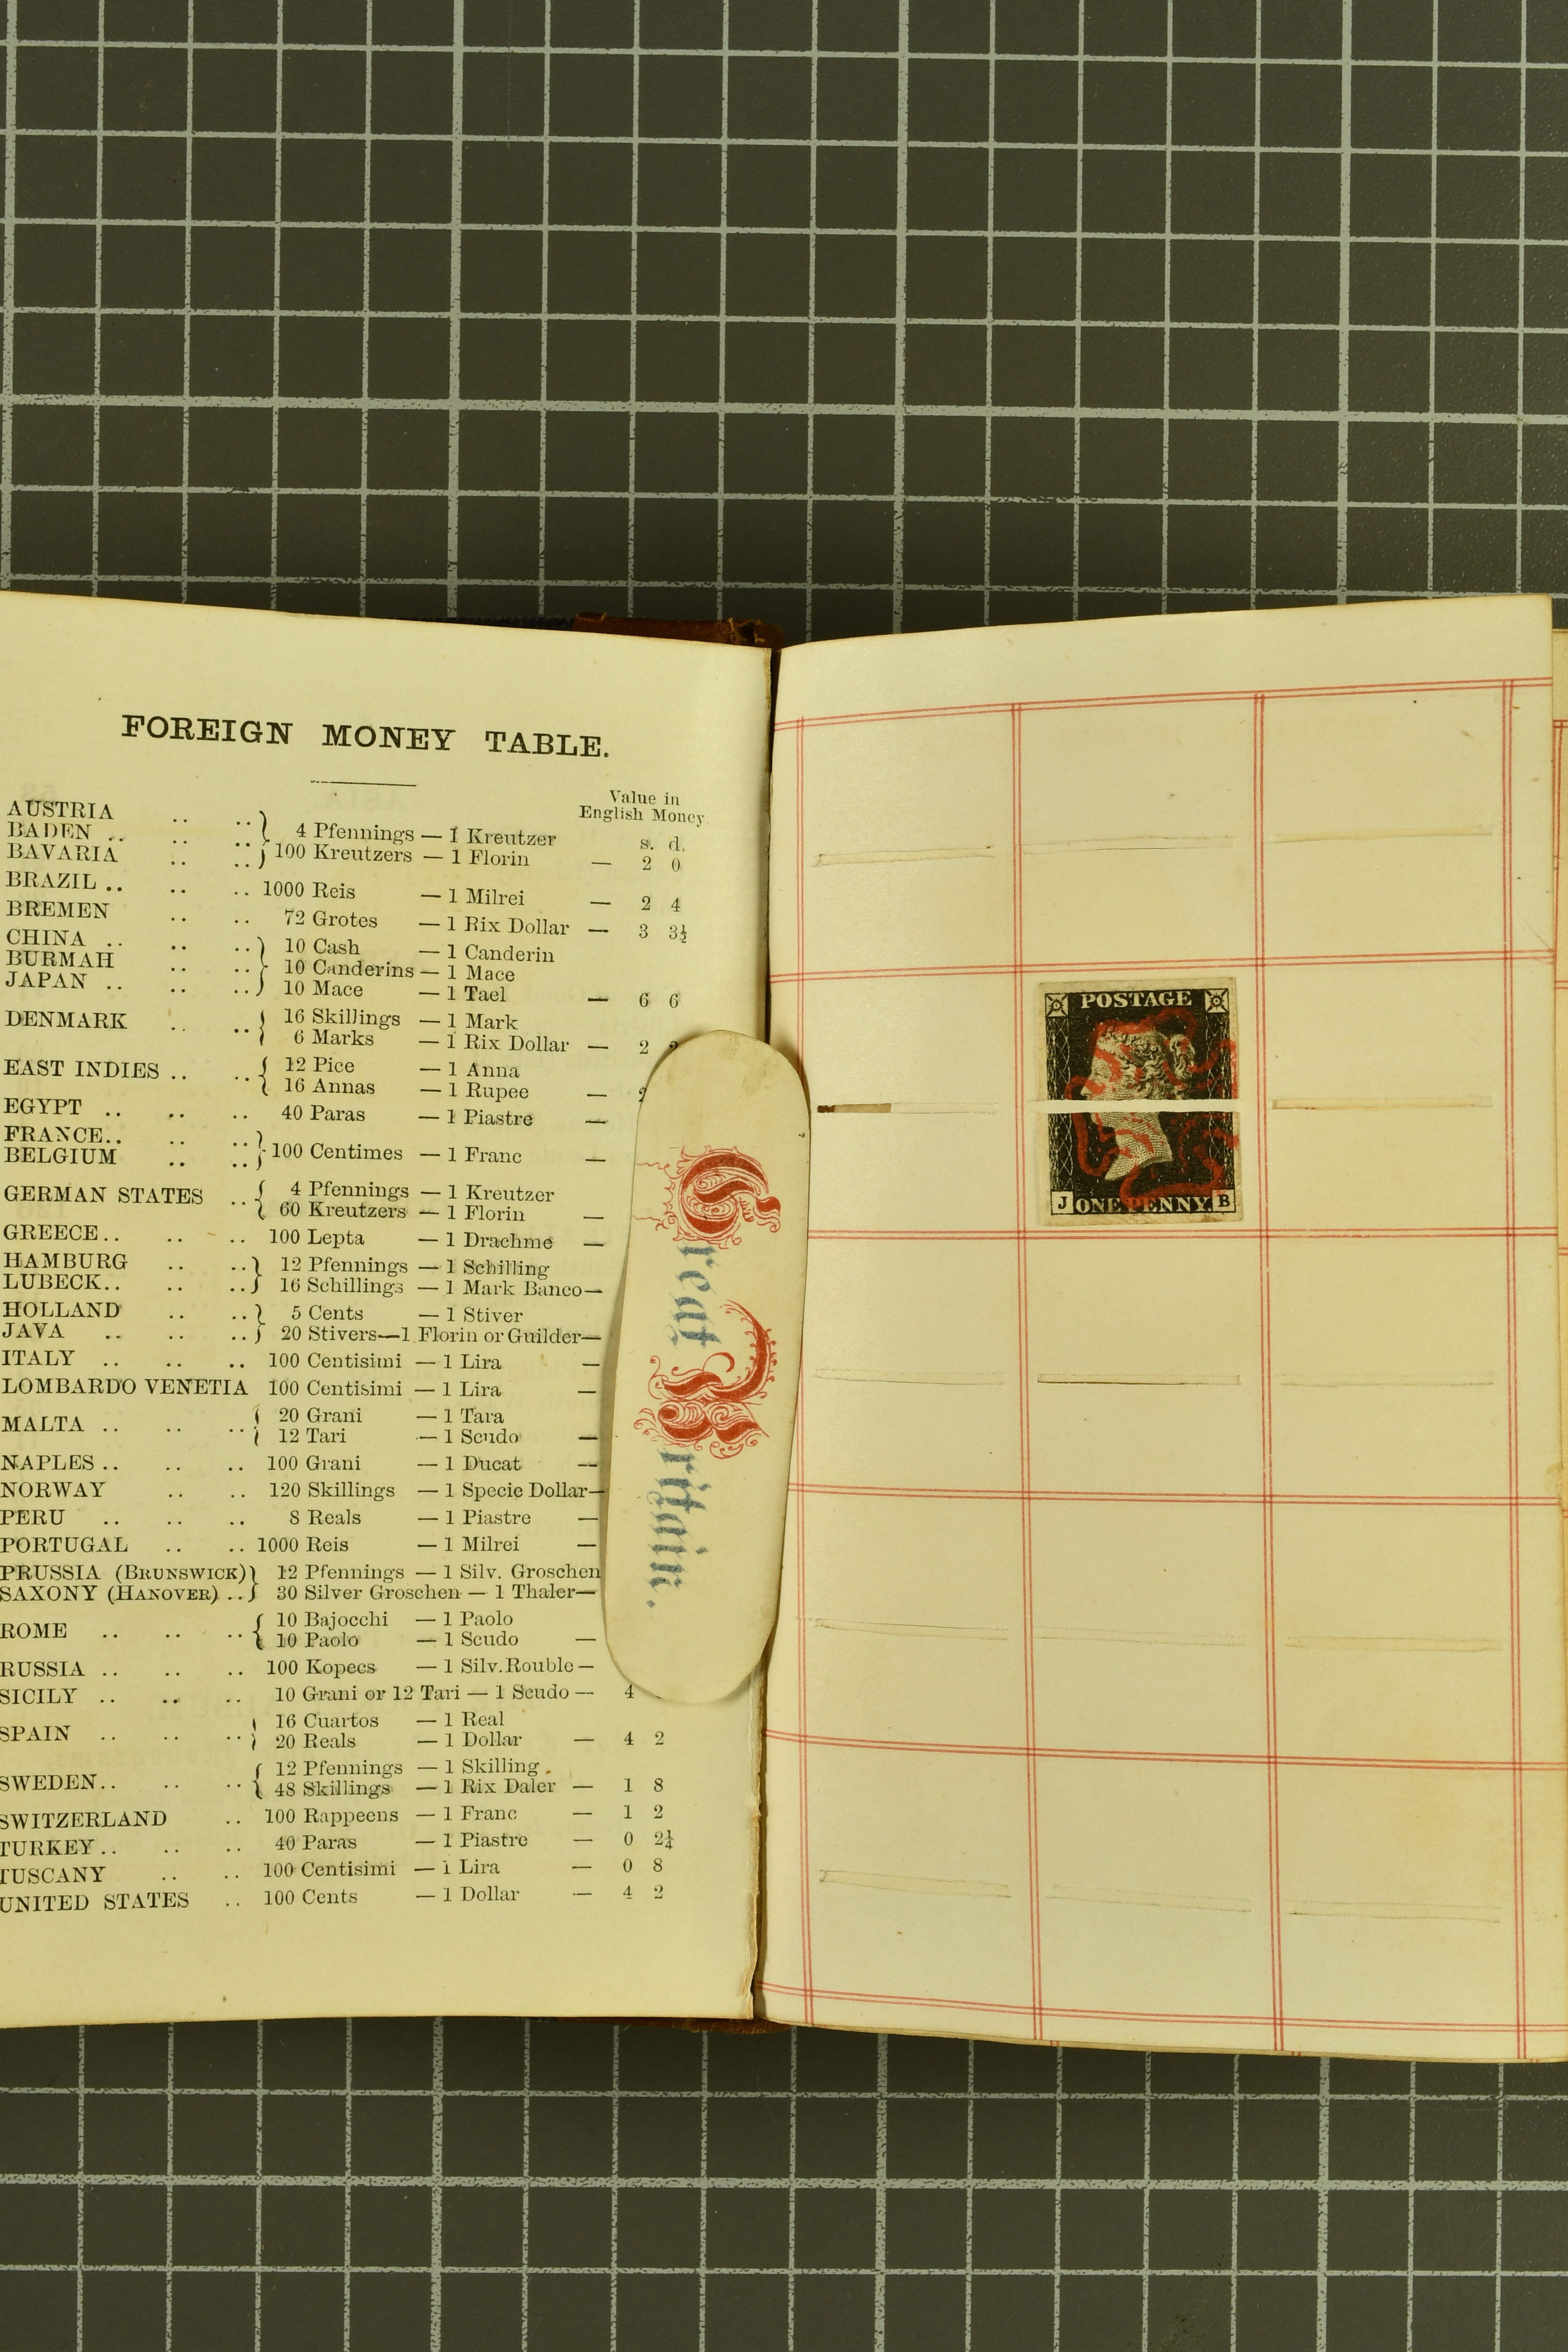 FOREIGN MONEY TABLE.
Value in
English Money.
s. d.
AUSTRIA .. ..
BADEN .. .. .. 4 Pfennings — 1 Kreutzer
BAVARIA .. .. 100 Kreutzers — 1 Florin — 2 0
BRAZIL .. .. .. 1000 Reis — 1 Milrei — 2 4
BREMEN .. .. 72 Grotes — 1 Rix Dollar — 3 3½
CHINA .. .. .. 10 Cash — 1 Canderin
BURMAH .. .. 10 Canderins — 1 Mace
JAPAN .. .. .. 10 Mace — 1 Tael — 6 6
DENMARK .. .. 16 Skillings — 1 Mark
6 Marks — 1 Rix Dollar — 2
EAST INDIES .. .. 12 Pice — 1 Anna
16 Annas — 1 Rupee —
EGYPT .. .. .. 40 Paras — 1 Piastre —
FRANCE.. .. ..
BELGIUM .. .. 100 Centimes — 1 Franc —
GERMAN STATES .. 4 Pfennings — 1 Kreutzer
60 Kreutzers — 1 Florin —
GREECE.. .. .. 100 Lepta — 1 Drachme —
HAMBURG .. .. 12 Pfennings — 1 Schilling
LUBECK.. .. .. 16 Schillings — 1 Mark Banco—
HOLLAND .. .. 5 Cents — 1 Stiver
JAVA .. .. .. 20 Stivers—1 Florin or Guilder—
ITALY .. .. .. 100 Centisimi — 1 Lira —
LOMBARDO VENETIA 100 Centisimi — 1 Lira —
MALTA .. .. .. 20 Grani — 1 Tara
12 Tari — 1 Scudo —
NAPLES .. .. .. 100 Grani — 1 Ducat —
NORWAY .. .. 120 Skillings — 1 Specie Dollar—
PERU .. .. .. 8 Reals — 1 Piastre —
PORTUGAL .. .. 1000 Reis — 1 Milrei —
PRUSSIA (BRUNSWICK) 12 Pfennings — 1 Silv. Groschen
SAXONY (HANOVER) .. 30 Silver Groschen — 1 Thaler—
ROME .. .. .. 10 Bajocchi — 1 Paolo
10 Paolo — 1 Scudo —
RUSSIA .. .. .. 100 Kopecs — 1 Silv. Rouble —
SICILY .. .. .. 10 Grani or 12 Tari — 1 Scudo — 4
SPAIN .. .. .. 16 Cuartos — 1 Real
20 Reals — 1 Dollar — 4 2
SWEDEN.. .. .. 12 Pfennings — 1 Skilling.
48 Skillings — 1 Rix Daler — 1 8
SWITZERLAND .. 100 Rappeens — 1 Franc — 1 2
TURKEY .. .. .. 40 Paras — 1 Piastre — 0 2¼
TUSCANY .. .. 100 Centisimi — 1 Lira — 0 8
UNITED STATES .. 100 Cents — 1 Dollar — 4 2
Great Britain.
POSTAGE
J ONE PENNY B